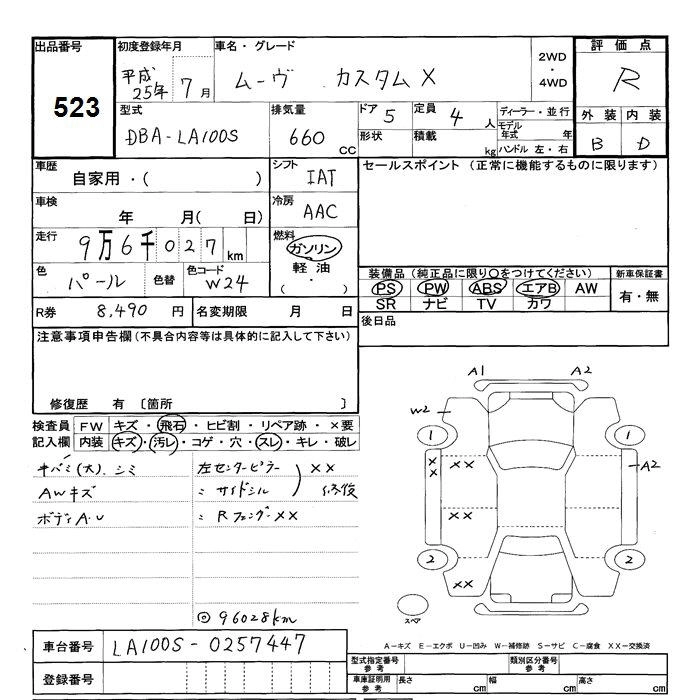 出品番号 初度登録年月 車名・グレード 2WD・4WD 評価点
523 平成25年 7月 ムーヴ カスタムX R
型式 排気量 ドア 5 定員 4人 ディーラー・並行 外装 内装
DBA-LA100S 660 CC 形状 積載 kg モデル年式 年 B D
ハンドル 左・右
車歴 シフト セールスポイント (正常に機能するものに限ります)
自家用・( ) IAT
車検 冷房
年 月( 日) AAC
走行 燃料
9万6千027km ガソリン
色 色替 色コード 軽油
パール W24 ( ・ )
装備品 (純正品に限り○をつけてください) 新車保証書
PS PW ABS エアB AW 有・無
SR ナビ TV カワ
R券 8,490 円 名変期限 月 日 後日品
注意事項申告欄(不具合内容等は具体的に記入して下さい)
修復歴 有 〔箇所 〕
検査員 FW キズ・飛石・ヒビ割・リペア跡・×要
記入欄 内装 キズ・汚レ・コゲ・穴・スレ・キレ・破レ
キバミ(大)、シミ 左センターピラー ××
AWキズ 〃 サイドシル 修復
ボディA・U 〃 Rフェンダー××
◎96028km
A1 A2
W2
1 1
×× ×× A2
××
2 2
××
スペア
車台番号 LA100S-0257447
A-キズ E-エクボ U-凹み W-補修跡 S-サビ C-腐食 XX-交換済
登録番号
型式指定番号 参考 類別区分番号 参考
車庫証明用 参考 長さ cm 幅 cm 高さ cm